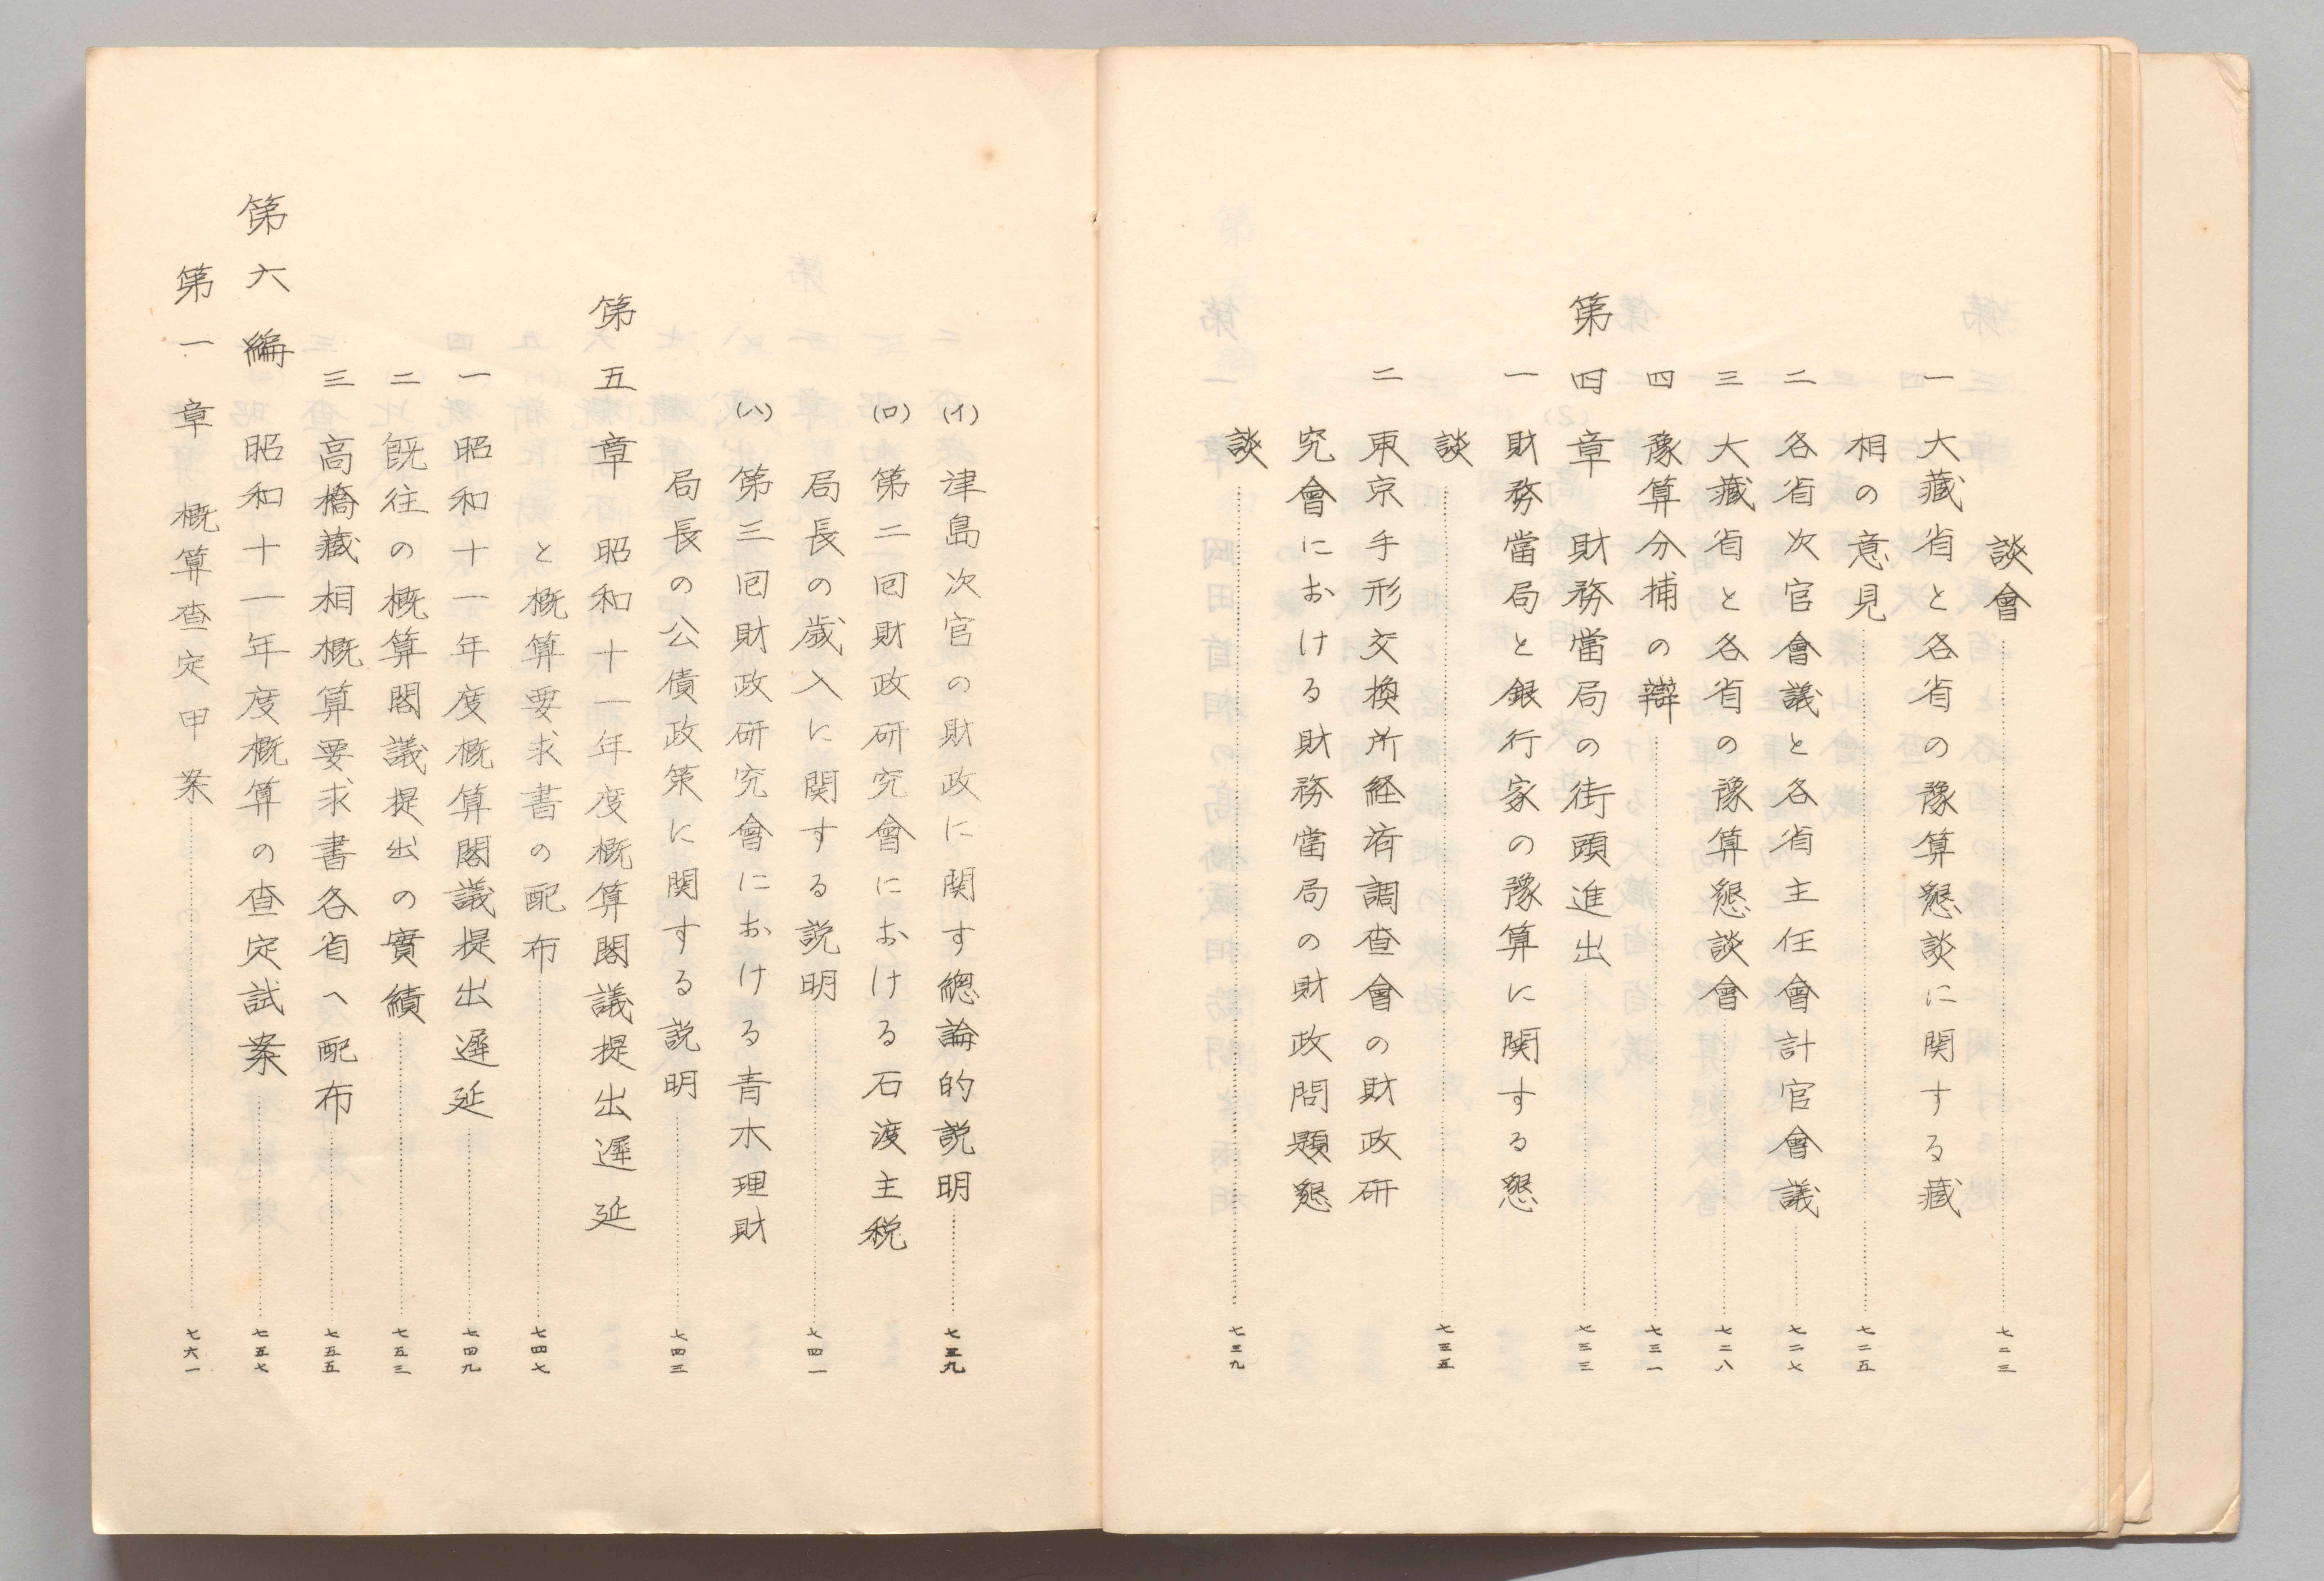 談會……七二三
一 大藏省と各省の豫算懇談に関する藏
相の意見……七二五
二 各省次官會議と各省主任會計官會議……七二七
三 大藏省と各省の豫算懇談會……七二八
四 豫算分捕の辯……七三一
第四章 財務當局の街頭進出……七三三
一 財務當局と銀行家の豫算に関する懇
談……七三五
二 東京手形交換所経済調査會の財政研
究會における財務當局の財政問題懇
談……七三九
(イ) 津島次官の財政に関す總論的説明……七三九
(ロ) 第二回財政研究會における石渡主税
局長の歳入に関する説明……七四一
(ハ) 第三回財政研究會における青木理財
局長の公債政策に関する説明……七四三
第五章 昭和十一年度概算閣議提出遲延
と概算要求書の配布……七四七
一 昭和十一年度概算閣議提出遲延……七四九
二 既往の概算閣議提出の實績……七五三
三 高橋藏相概算要求書各省へ配布……七五五
第六編 昭和十一年度概算の査定試案……七五七
第一章 概算査定甲案……七六一